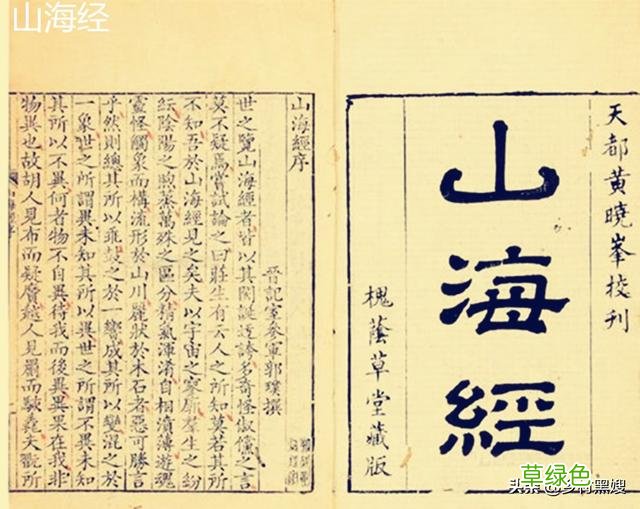 山海经
天都黄曉峯挍刊
山海經
槐蔭草堂藏版
山海經序
晉記室叅軍郭璞撰
世之覽山海經者皆以其閎誕迂誇多奇怪俶儻之言
莫不疑焉嘗試論之曰莊生有云人之所知莫若其所
不知吾於山海經見之矣夫以宇宙之寥廓羣生之紛
紜陰陽之煦蒸萬殊之區分精氣渾淆自相濆薄遊魂
靈怪觸象而構流形於山川麗狀於木石者惡可勝言
乎然則總其所以乖鼓之於一響成其所以變混之於
一象世之所謂異未知其所以異世之所謂不異未知
其所以不異何者物不自異待我而後異異果在我非
物異也故胡人見布而疑黂越人見罽而駭毳夫翫所
草绿色
头条@乡村黑嫂